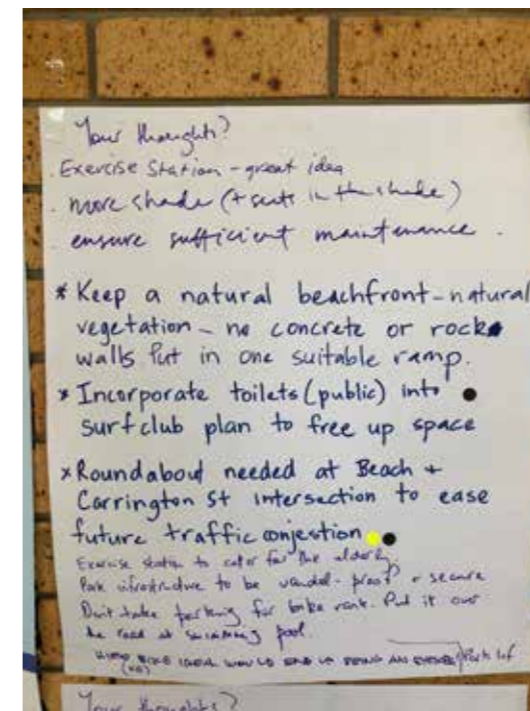 Your thoughts?
. Exercise Station - great idea
. more shade (+ seats in the shade)
. ensure sufficient maintenance .
* Keep a natural beachfront - natural
vegetation - no concrete or rock
walls Put in one suitable ramp.
* Incorporate toilets (public) into
surfclub plan to free up space
* Roundabout needed at Beach +
Carrington St intersection to ease
future traffic conjestion
Exercise station to cater for the elderly
Park infrastructure to be vandal-proof + secure
Don't take parking for bike rank. Put it over
the road at swimming pool.
BIKE IDEA WOULD END UP BEING AN
Your thoughts?